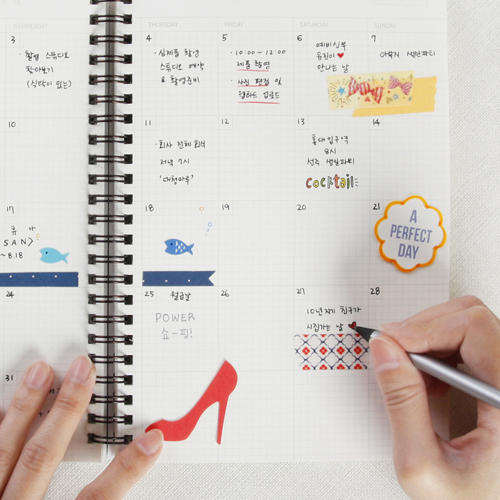 WEDNESDAY
THURSDAY
FRIDAY
SATURDAY
SUNDAY
3
촬영 스튜디오
찾아보기
(식탁이 있는)
4
실제품 촬영
스튜디오 예약
& 촬영준비
5
10:00 - 12:00
제품 촬영
사진 편집 및
웹하드 업로드
6
예비신부
유진이♥
만나는 날
7
아빠 생신파티
10
11
회사 전체 회식
저녁 7시
'대청마루'
12
13
홍대입구역
8시
성주 생일파티
cocktail
14
17
휴가
SAN>
~8.18
18
19
20
21
A
PERFECT
DAY
24
25
월급날
POWER
쇼-핑!
26
27
10년지기 친구가
시집가는 날
28
31